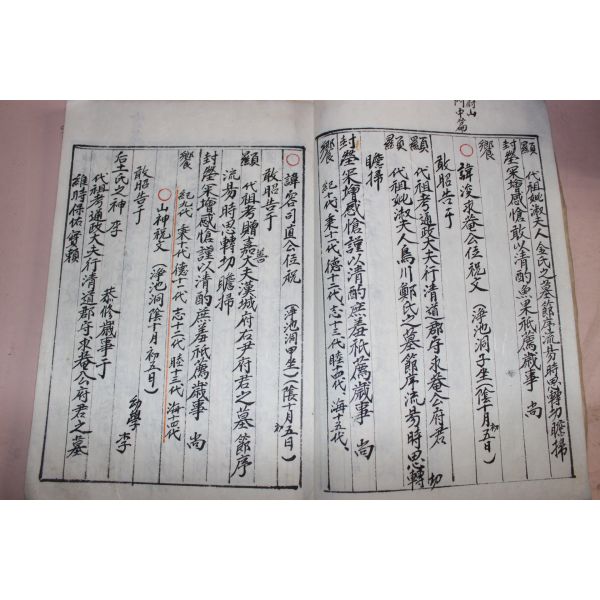 蔚山
顯 代祖妣淑夫人金氏之墓節序流易時思轉切瞻掃
封塋采增感愴敢以清酌魚果祗薦歲事 尚
饗
諱浚求庵公位祝文 (淨池洞子坐)(陰十月初五日)
敢昭告于
顯 代祖考通政大夫行清道郡守求庵公府君
顯 代祖妣淑夫人烏川鄭氏之墓節序流易時思轉切
瞻掃
封塋采增感愴謹以清酌庶羞祗薦歲事 尚
饗 紀九代 秉十代 德十二代 志十三代 睦十四代 海十五代
諱 司直公位祝 (淨池洞甲坐)(陰十月初五日)
敢昭告于
顯 代祖考贈嘉善大夫漢城府右尹府君之墓節序
流易時思轉切瞻掃
封塋采增感愴謹以清酌庶羞祗薦歲事 尚
饗 紀九代 秉十代 德十一代 志十二代 睦十三代 海十四代
山神祝文 (淨池洞陰十月初五日)
敢昭告于 幼學 李
后土氏之神 李 恭修歲事于
代祖考通政大夫行清道郡守求庵公府君之墓
維時保佑實賴